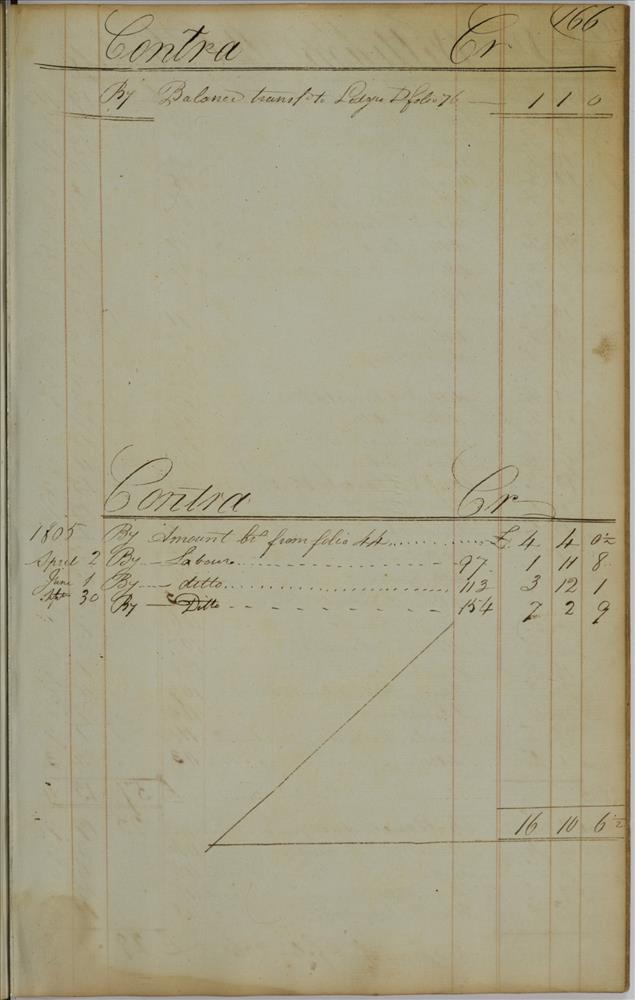 166
Contra Cr
By Balance transf.d to Ledger D folio 76 — 1 1 0
Contra Cr
1805 By Amount bro. from folio 44 .......... £ 4 4 0½
April 2 By — Labour .......... 97 1 11 8
June 1 By — ditto .......... 113 3 12 1
30 By — Ditto - - - - - 154 7 2 9
16 10 6½